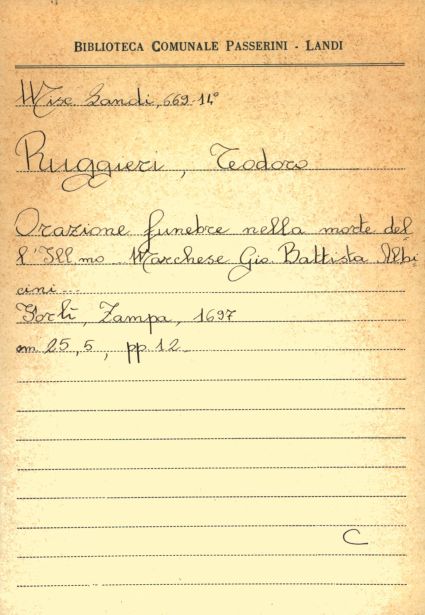 BIBLIOTECA COMUNALE PASSERINI - LANDI
Misc. Landi, 669-14°
Ruggieri, Teodoro
Orazione funebre nella morte del
l'Ill.mo Marchese Gio. Battista Albi
cini...
Forlì, Zampa, 1697
cm 25,5, pp. 12
C